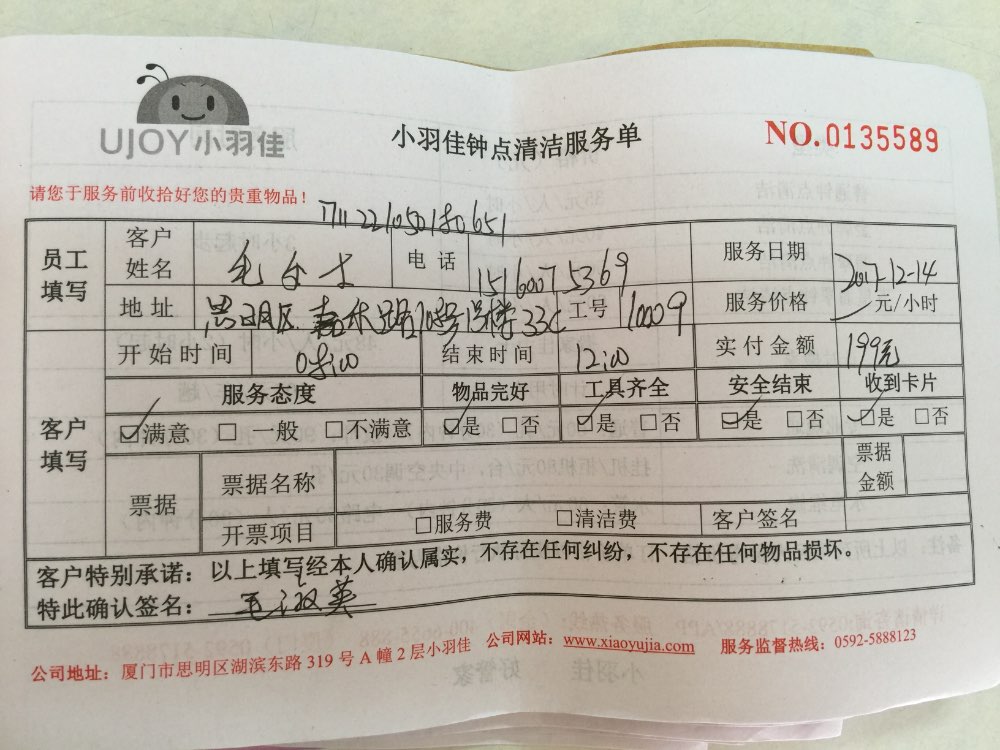 UJOY小羽佳
小羽佳钟点清洁服务单
NO.0135589
请您于服务前收拾好您的贵重物品！
员工填写
客户姓名 毛女士
电话 15160075369
服务日期 2017-12-14
地址 思明区
工号 10009
服务价格 元/小时
开始时间
结束时间 12:00
实付金额 199元
客户填写
服务态度 物品完好 工具齐全 安全结束 收到卡片
☑满意 □一般 □不满意 ☑是 □否 ☑是 □否 ☑是 □否 ☑是 □否
票据
票据名称
票据金额
开票项目 □服务费 □清洁费 客户签名
客户特别承诺：以上填写经本人确认属实，不存在任何纠纷，不存在任何物品损坏。
特此确认签名：毛淑英
公司地址：厦门市思明区湖滨东路 319 号 A 幢 2 层小羽佳 公司网站：www.xiaoyujia.com 服务监督热线：0592-5888123